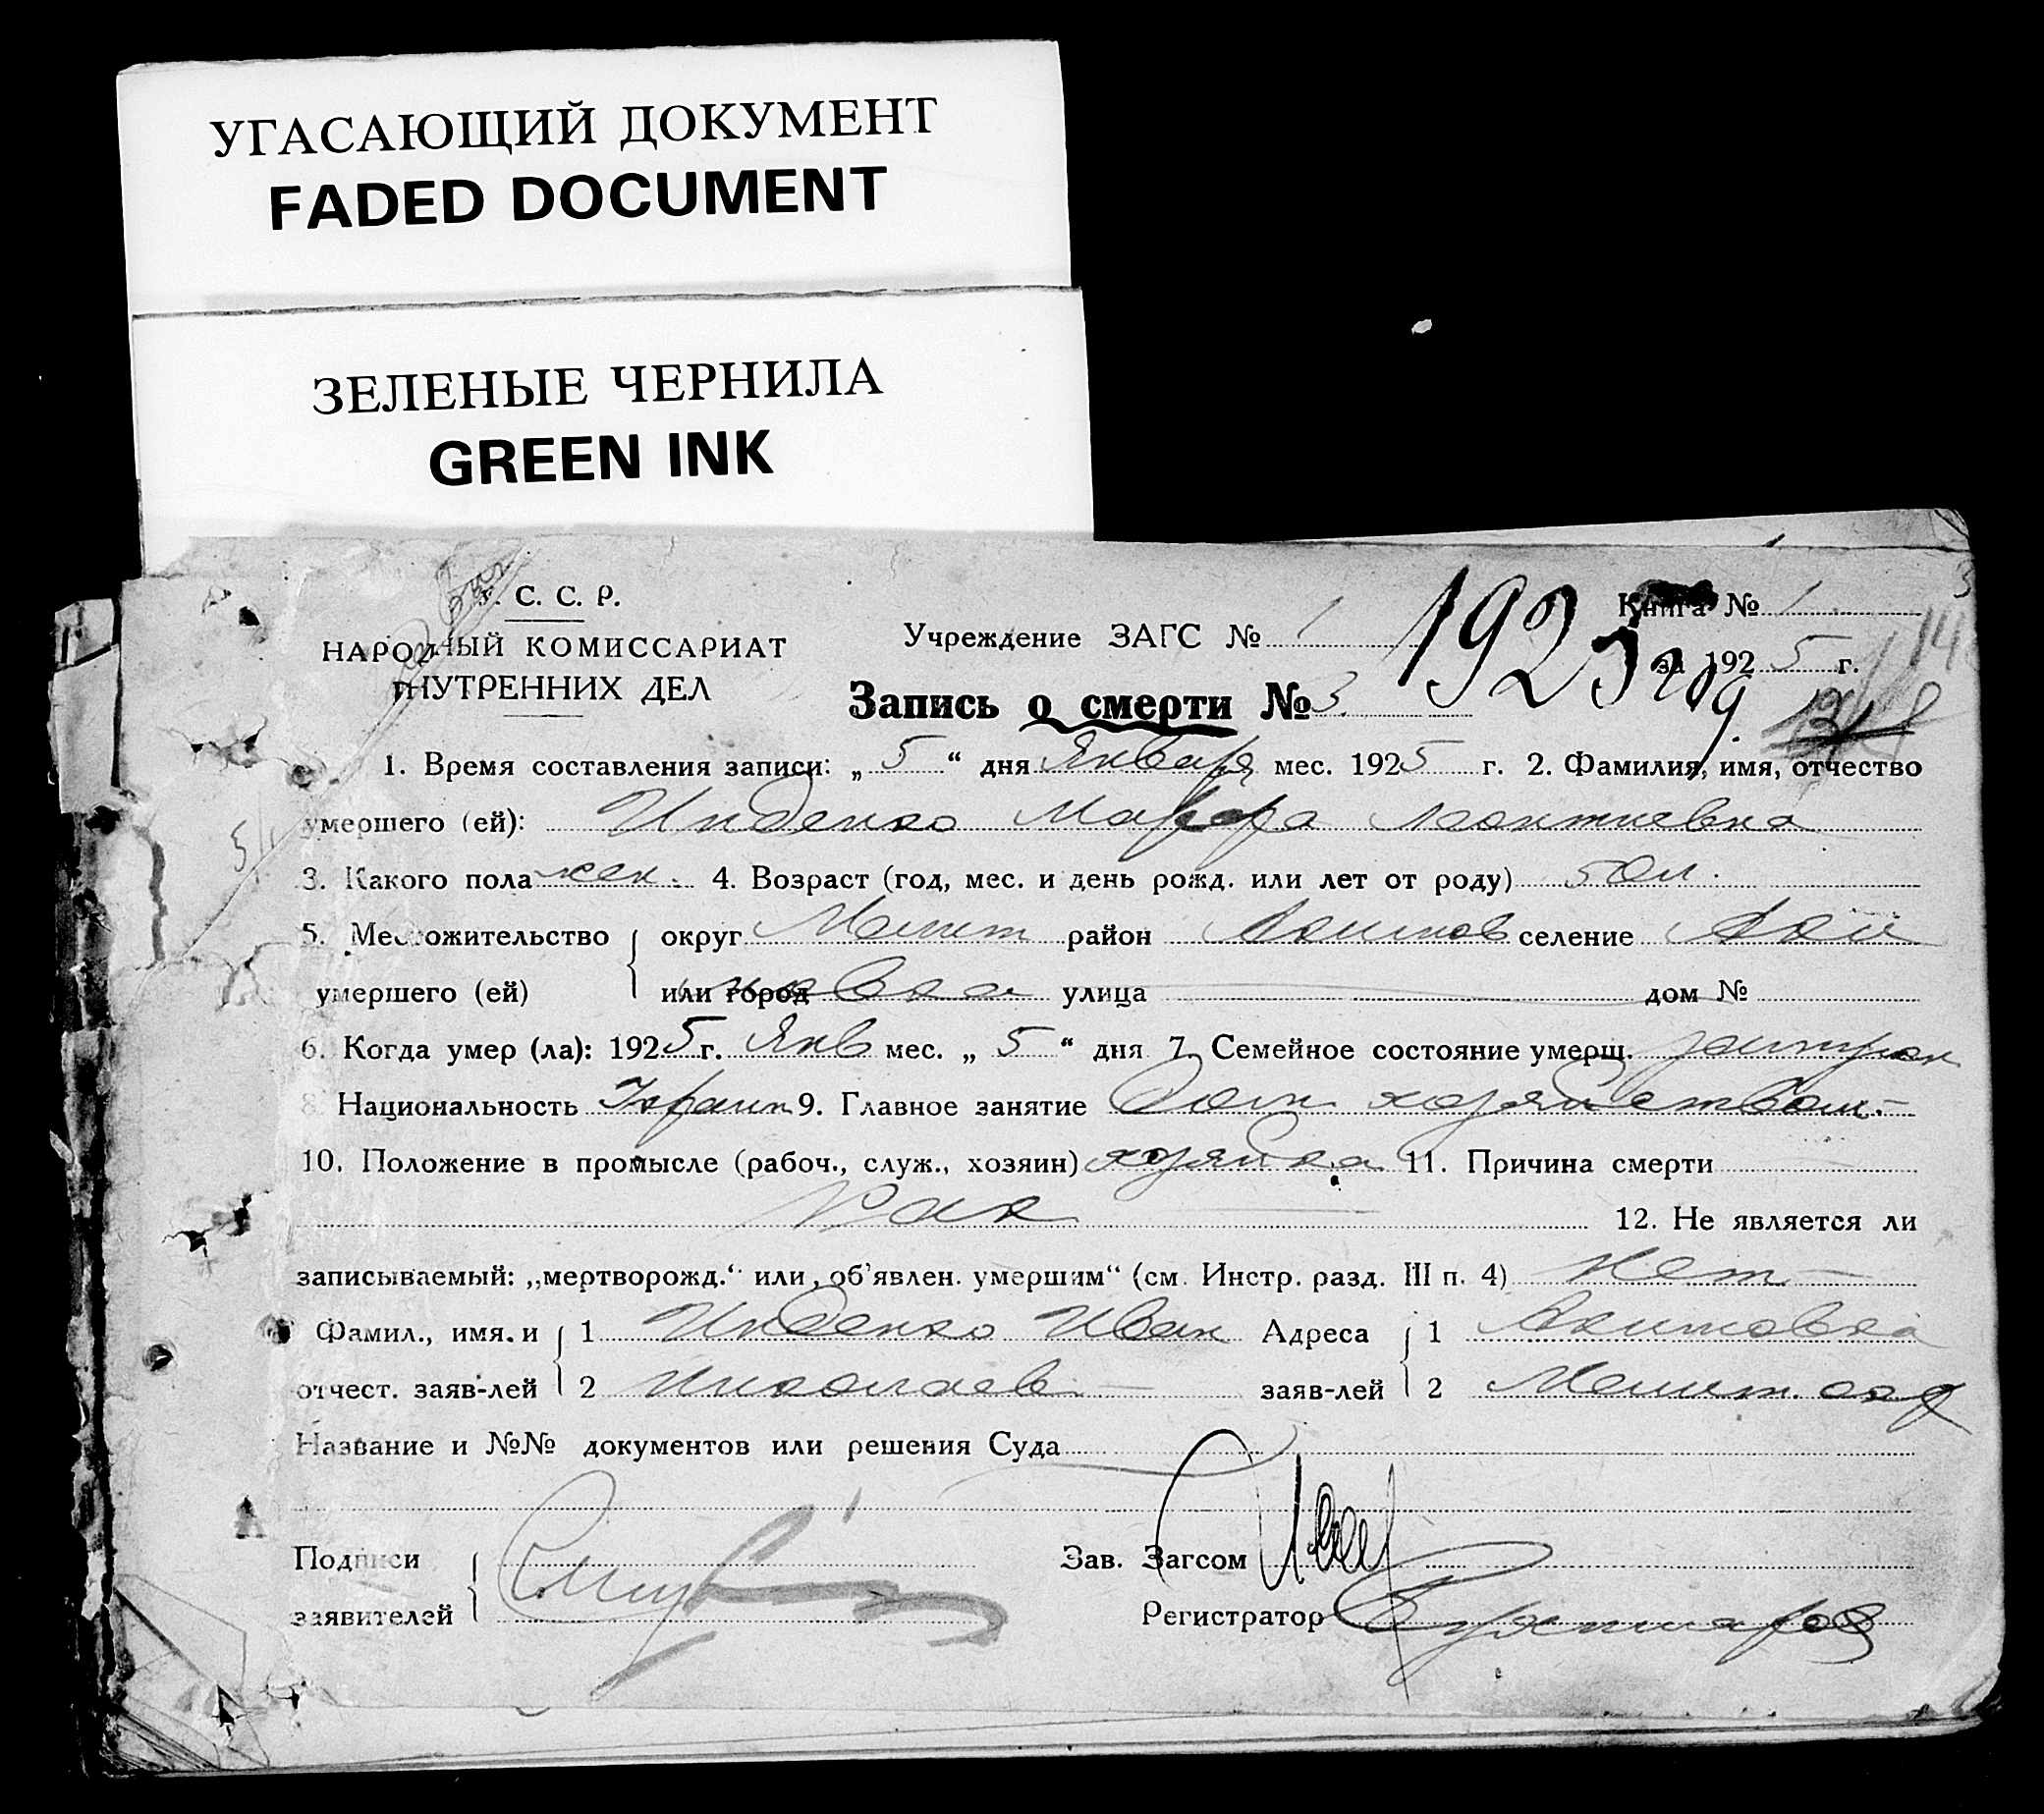 УГАСАЮЩИЙ ДОКУМЕНТ
FADED DOCUMENT
ЗЕЛЕНЫЕ ЧЕРНИЛА
GREEN INK
С. С. Р.
НАРОДНЫЙ КОМИССАРИАТ
ВНУТРЕННИХ ДЕЛ
Учреждение ЗАГС № 1
1925 год.
Книга № 1
за 1925 г.
Запись о смерти № 3.
1. Время составления записи: „5“ дня Января мес. 1925 г. 2. Фамилия, имя, отчество
умершего (ей): Инденко Марфа Леонтиевна
3. Какого пола жен. 4. Возраст (год, мес. и день рожд. или лет от роду) 50 л.
5. Местожительство округ Мелит район Акимов селение Аки
умершего (ей) или город мовка улица дом №
6. Когда умер (ла): 1925 г. Янв мес. „5“ дня 7. Семейное состояние умерш. замужн
8. Национальность Украин 9. Главное занятие Дом хозяйством
10. Положение в промысле (рабоч., служ., хозяин) хозяйка 11. Причина смерти
Рак 12. Не является ли
записываемый: „мертворожд.“ или „об’явлен. умершим“ (см. Инстр. разд. III п. 4) Нет
Фамил., имя, и 1 Инденко Иван Адреса 1 Акимовка
отчест. заяв-лей 2 Николаев заяв-лей 2 Мелит. окр
Название и №№ документов или решения Суда
Подписи Зав. Загсом
заявителей Регистратор